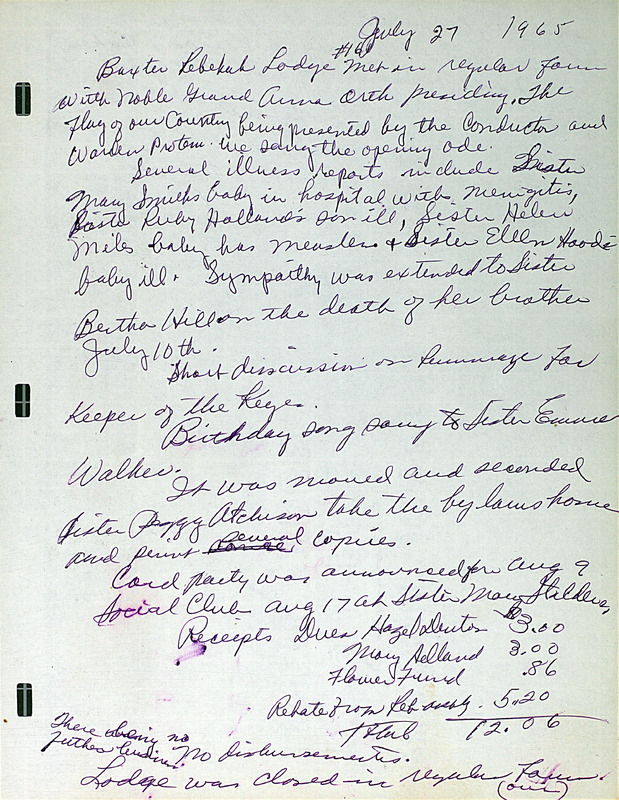 July 27 1965
Baxter Rebekah Lodge #460 Met in regular form
with Noble Grand Anna Orth presiding. The
Flag of our Country being presented by the Conductor and
Warden Protem. We sang the opening ode.
Several illness reports include Sister
Mary Smiths baby in hospital with Menigitis,
Sister Ruby Hollands son ill, Sister Helen
Miles baby has measles & Sister Ellen Hoods
baby ill. Sympathy was extended to Sister
Bertha Hill on the death of her brother
July 10th.
Short discussion on Rummage for
Keeper of the Keyes.
Birthday song sang to Sister Emma
Walker.
It was moved and seconded
Sister Peggy Atchison take the by laws home
and print several copies.
Card party was announced for Aug 9
Social Club Aug 17 at Sister Mary
Receipts Dues Hazel Denton $3.00
Mary 3.00
Flower Fund .86
Rebate from 5.20
Total 12.06
There being no
futher
No disbursements.
Lodge was closed in regular Form.
(over)